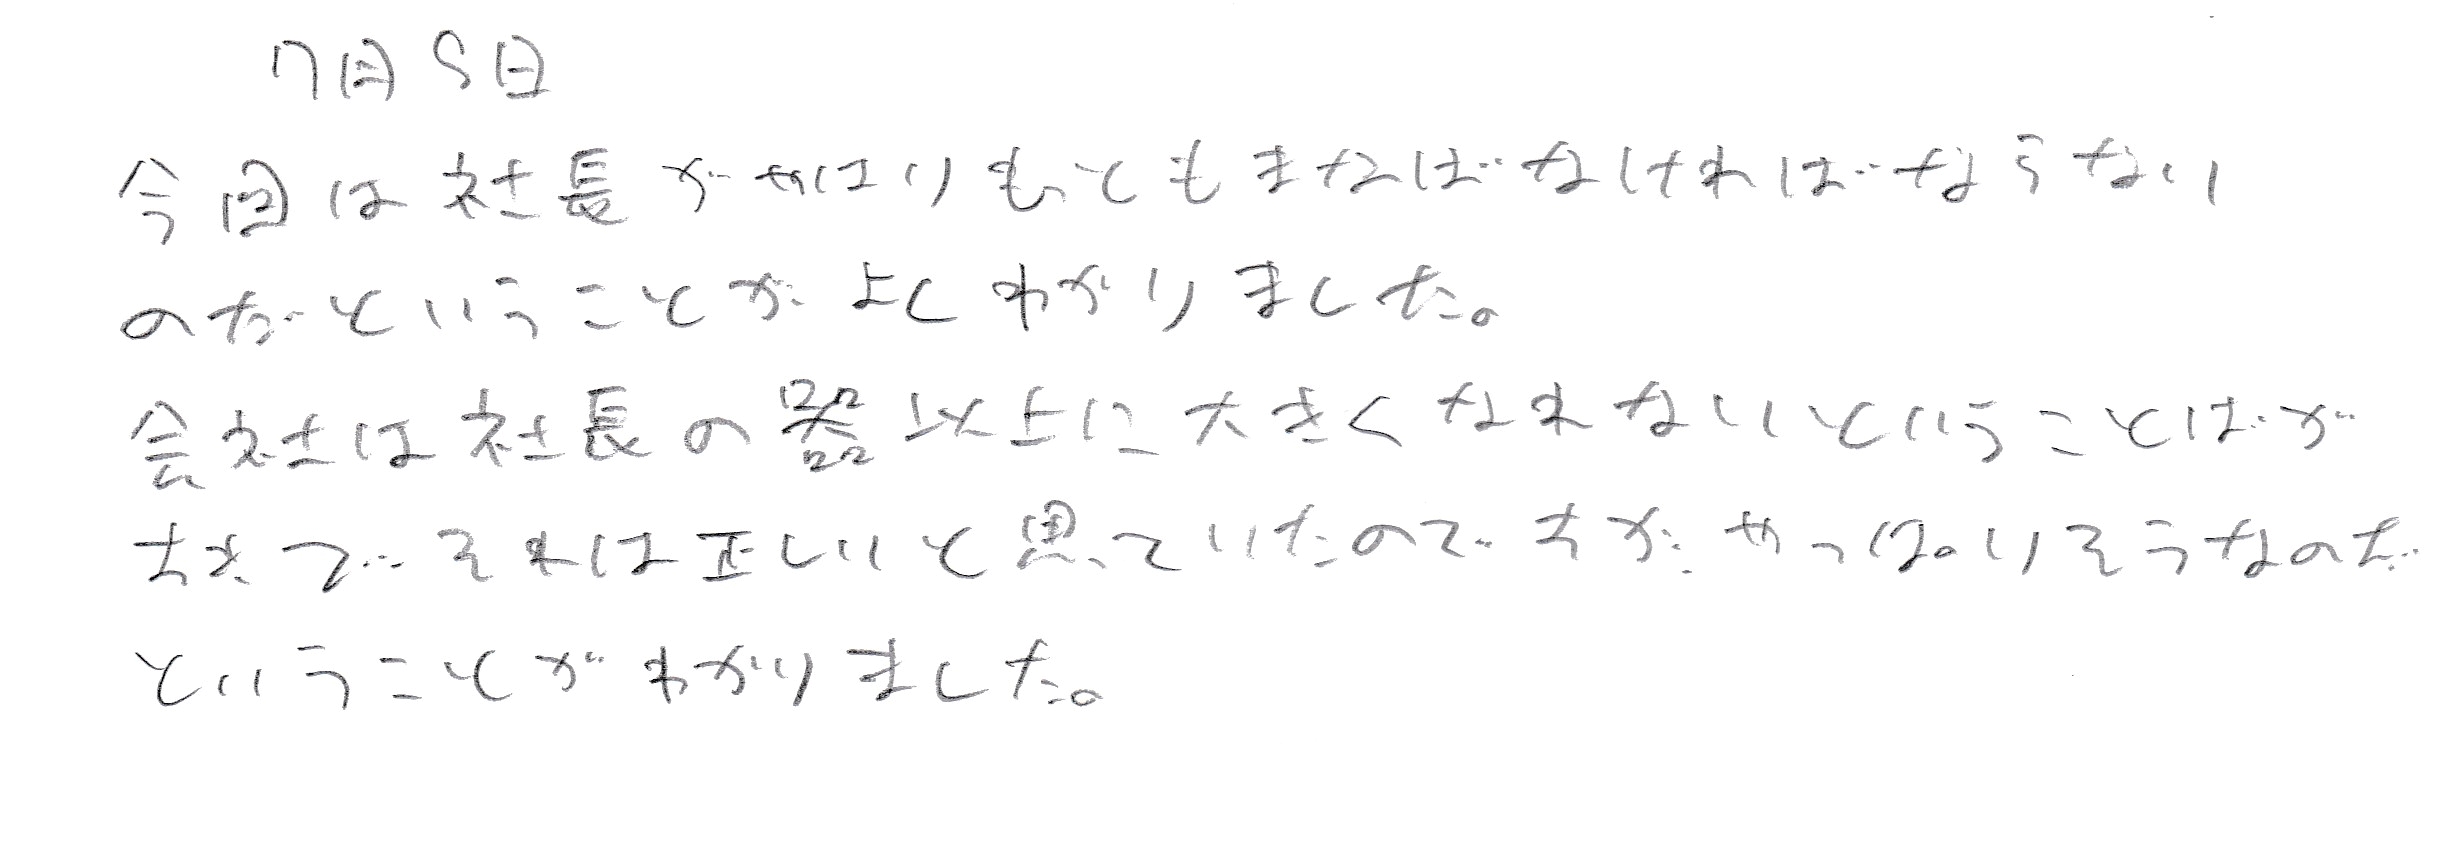 7月8日
今回は社長がやはりもっともまなばなければならない
のだということがよくわかりました。
会社は社長の器以上に大きくなれないということばが
大好きで それは正しいと思っていたのですが やっぱりそうなのだ
ということがわかりました。